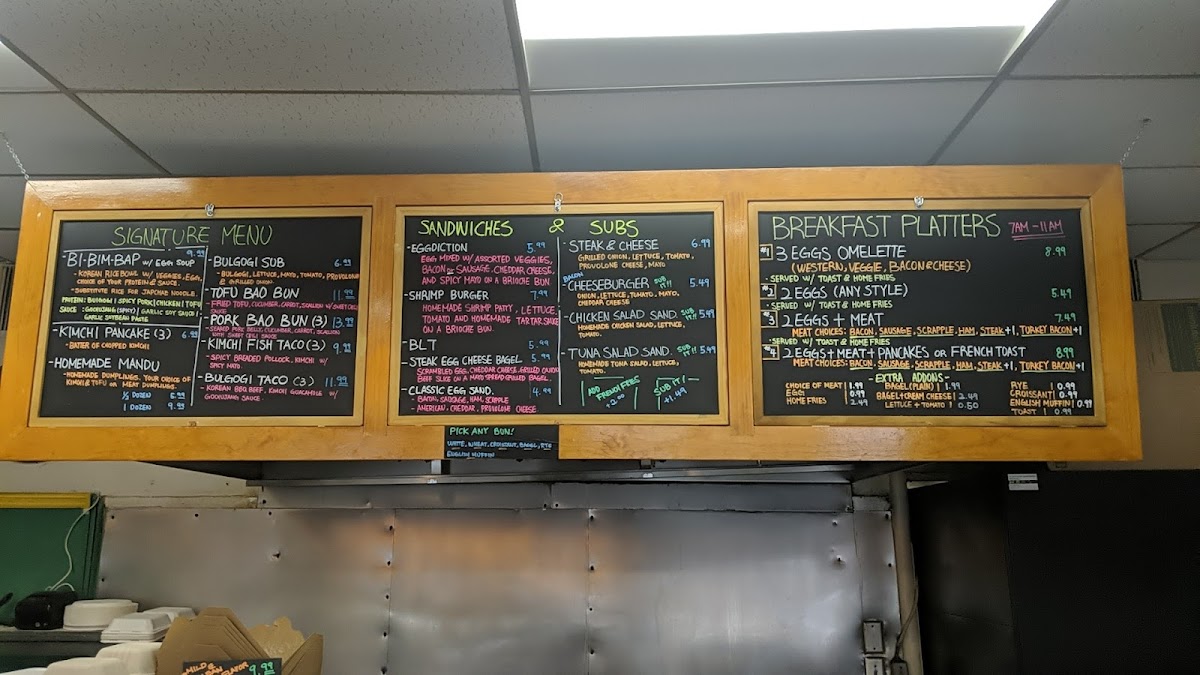 SIGNATURE MENU
BI-BIM-BAP W/ EGG SOUP 9.99
- KOREAN RICE BOWL W/ VEGGIES, EGG,
CHOICE OF YOUR PROTEIN & SAUCE.
- SUBSTITUTE RICE FOR JAPCHAE NOODLE
PROTEIN: BULGOGI | SPICY PORK | CHICKEN | TOFU
SAUCE: GOCHUJANG (SPICY) | GARLIC SOY SAUCE |
GARLIC SOYBEAN PASTE
- KIMCHI PANCAKE (3) 6.99
- BATTER OF CHOPPED KIMCHI
- HOMEMADE MANDU
- HOMEMADE DUMPLINGS. YOUR CHOICE OF
KIMCHI & TOFU OR MEAT DUMPLINGS.
1/2 DOZEN 5.99
1 DOZEN 9.99
- BULGOGI SUB 6.99
- BULGOGI, LETTUCE, MAYO, TOMATO, PROVOLONE
& GRILLED ONION.
- TOFU BAO BUN 11.99
- FRIED TOFU, CUCUMBER, CARROT, SCALLION W/
SAUCE
- PORK BAO BUN (3) 13.99
- SEARED PORK BELLY, CUCUMBER, CARROT, SCALLION
- KIMCHI FISH TACO (3) 9.99
- SPICY BREADED POLLOCK, KIMCHI W/
SPICY MAYO.
- BULGOGI TACO (3) 11.99
- KOREAN BBQ BEEF, KIMCHI GUACAMOLE W/
GOCHUJANG SAUCE
SANDWICHES & SUBS
- EGGDICTION 5.99
EGG MIXED W/ ASSORTED VEGGIES,
BACON OR SAUSAGE, CHEDDAR CHEESE,
AND SPICY MAYO ON A BRIOCHE BUN.
- SHRIMP BURGER 7.99
HOMEMADE SHRIMP PATTY, LETTUCE,
TOMATO AND HOMEMADE TARTAR SAUCE
ON A BRIOCHE BUN.
- BLT 5.99
- STEAK EGG CHEESE BAGEL 5.99
SCRAMBLED EGG, CHEDDAR CHEESE, GRILLED ONION,
BEEF SLICE ON A MAYO SPREAD GRILLED BAGEL.
- CLASSIC EGG SAND. 4.99
- BACON, SAUSAGE, HAM, SCRAPPLE
- AMERICAN, CHEDDAR, PROVOLONE CHEESE
- STEAK & CHEESE 6.99
GRILLED ONION, LETTUCE, TOMATO,
PROVOLONE CHEESE, MAYO
BACON
- CHEESEBURGER SUB IT!! 5.49
ONION, LETTUCE, TOMATO, MAYO,
CHEDDAR CHEESE
- CHICKEN SALAD SAND. SUB IT!! 5.99
HOMEMADE CHICKEN SALAD, LETTUCE,
TOMATO.
- TUNA SALAD SAND. SUB IT!! 5.99
HOMEMADE TUNA SALAD, LETTUCE,
TOMATO.
ADD FRENCH FRIES +2.00
SUB IT! +1.49
PICK ANY BUN!
WHITE, WHEAT, CROISSANT, BAGEL, RYE
ENGLISH MUFFIN
BREAKFAST PLATTERS 7AM - 11AM
#1 3 EGGS OMELETTE 8.99
(WESTERN, VEGGIE, BACON & CHEESE)
- SERVED W/ TOAST & HOME FRIES
#2 2 EGGS (ANY STYLE) 5.49
- SERVED W/ TOAST & HOME FRIES
#3 2 EGGS + MEAT 7.49
MEAT CHOICES: BACON, SAUSAGE, SCRAPPLE, HAM, STEAK +1, TURKEY BACON +1
- SERVED W/ TOAST & HOME FRIES
#4 2 EGGS + MEAT + PANCAKES OR FRENCH TOAST 8.99
MEAT CHOICES: BACON, SAUSAGE, SCRAPPLE, HAM, STEAK +1, TURKEY BACON +1
- EXTRA ADDONS -
CHOICE OF MEAT | 1.99
EGG | 0.99
HOME FRIES | 2.49
BAGEL (PLAIN) | 1.99
BAGEL + CREAM CHEESE | 2.49
LETTUCE + TOMATO | 0.50
RYE | 0.99
CROISSANT | 0.99
ENGLISH MUFFIN | 0.99
TOAST | 0.99
MILD &
9.99